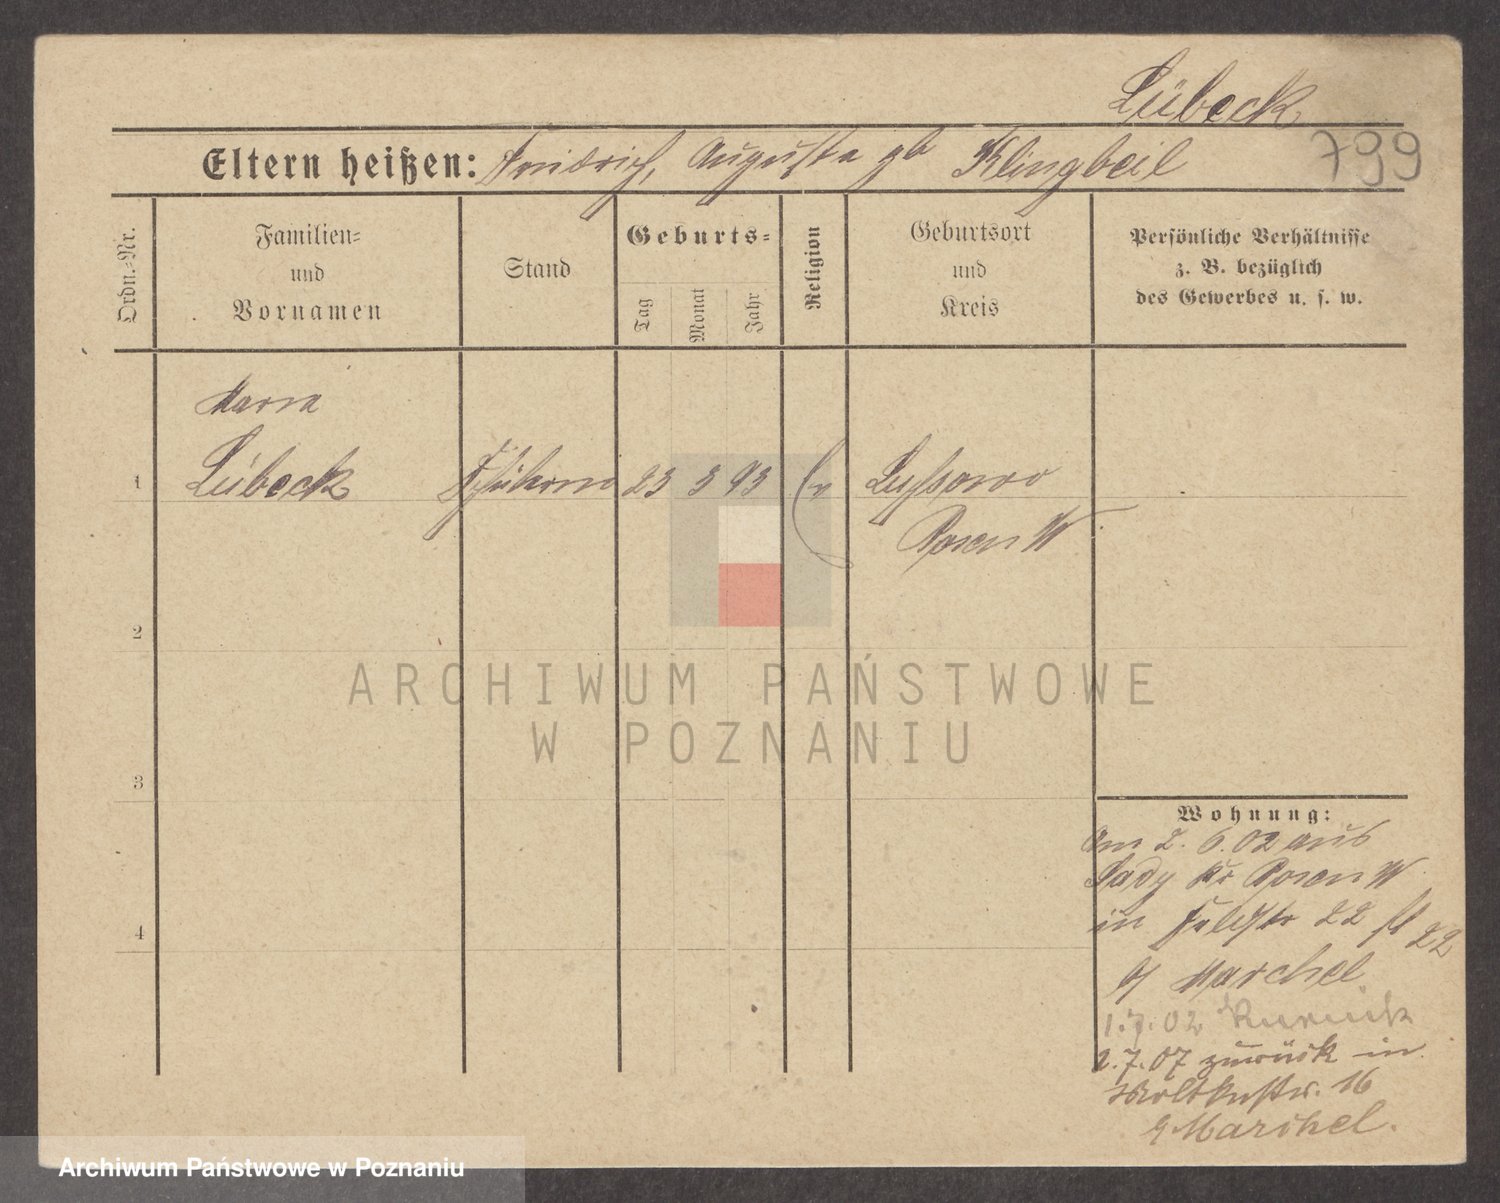 Lübeck
Eltern heißen: Friedrich, Augusta gb Klingbeil
799
Ordn.-Nr.
Familien-
und
Vornamen
Stand
Geburts-
Tag
Monat
Jahr
Religion
Geburtsort
und
Kreis
Persönliche Verhältnisse
z. B. bezüglich
des Gewerbes u. s. w.
Maria
1 Lübeck Schülerin 23 3 93 Lussowo
Posen W
2
3
4
Wohnung:
Am 2. 6. 02 aus
Sady Kr Posen W
in Feldstr 22
22
b/ Marchel
1.7.02 Kurnik
2.7.07 zurück in
Moltkestr. 16
Marchel.
ARCHIWUM PAŃSTWOWE
W POZNANIU
Archiwum Państwowe w Poznaniu